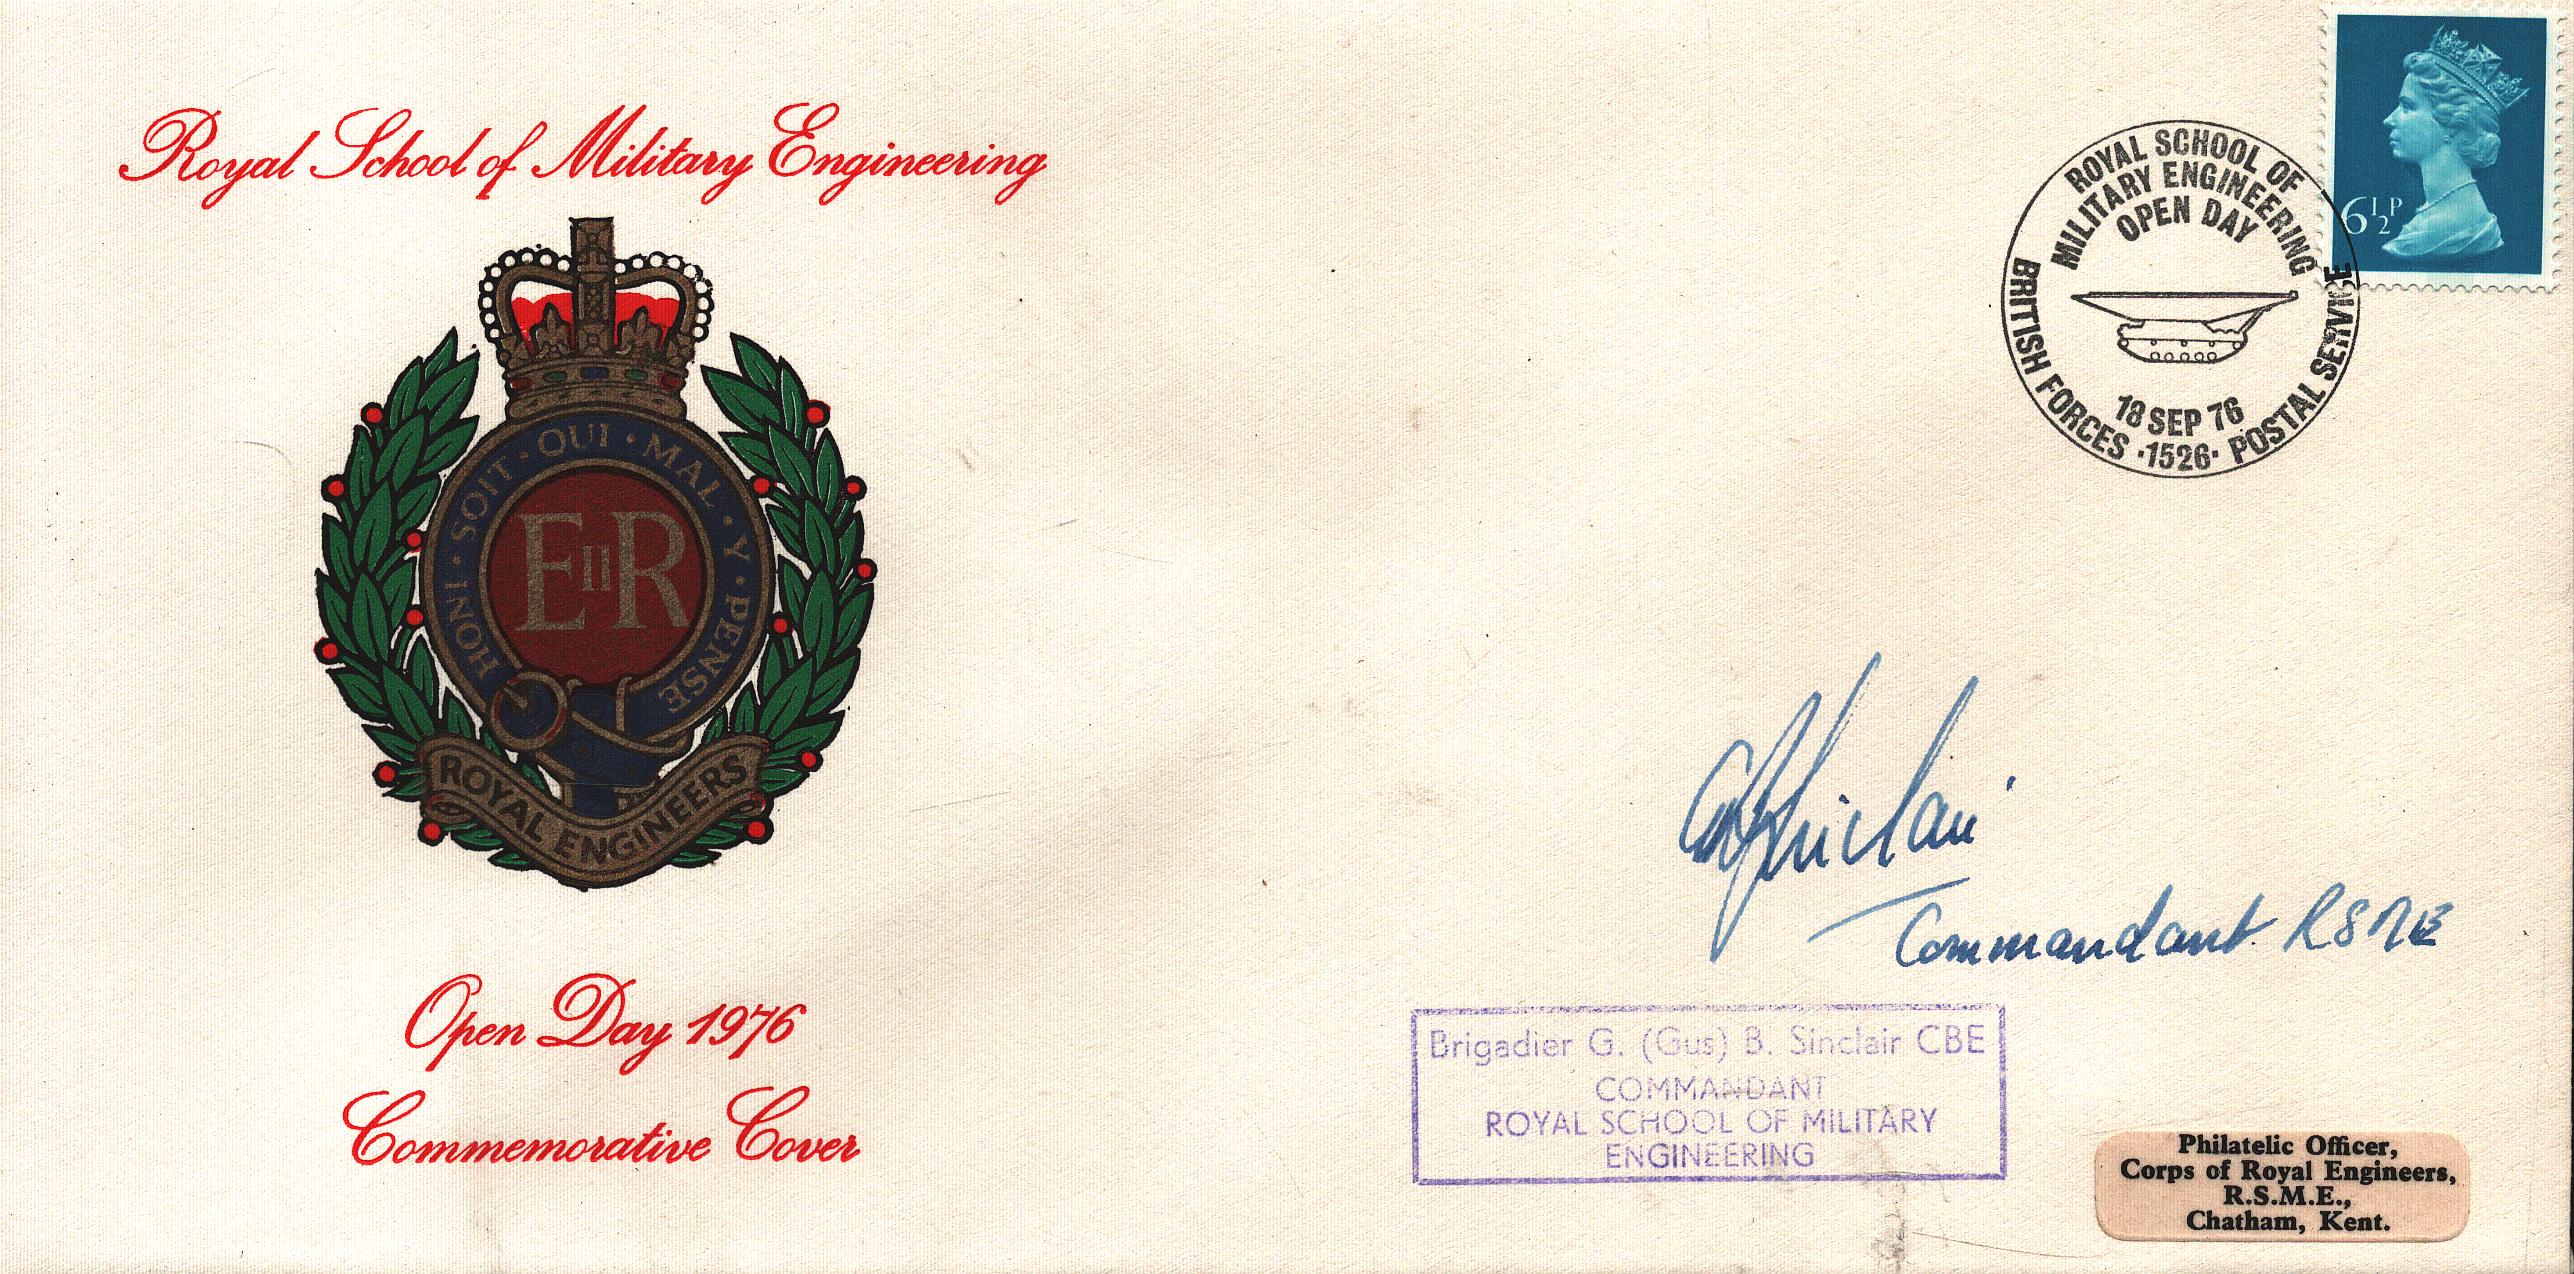 Royal School of Military Engineering
HONI · SOIT · QUI · MAL · Y · PENSE
EIIR
ROYAL ENGINEERS
Open Day 1976
Commemorative Cover
6½P
ROYAL SCHOOL OF
MILITARY ENGINEERING
OPEN DAY
18 SEP 76
BRITISH FORCES ·1526· POSTAL SERVICE
Sinclair
Commandant RSME
Brigadier G. (Gus) B. Sinclair CBE
COMMANDANT
ROYAL SCHOOL OF MILITARY
ENGINEERING
Philatelic Officer,
Corps of Royal Engineers,
R.S.M.E.,
Chatham, Kent.